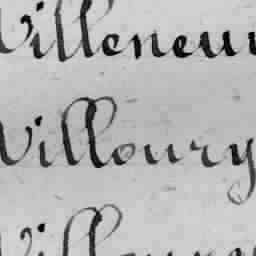 Villeneuv
Villoury